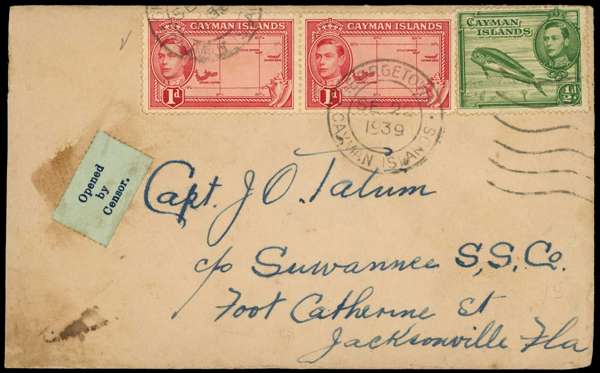 CAYMAN ISLANDS
1d
CAYMAN ISLANDS
1d
CAYMAN
ISLANDS
½d
GEORGETOWN
1939
CAYMAN ISLANDS
Opened
by
Censor.
Capt. J. O. Tatum
c/o Suwannee S,S, Co.
Foot Catherine St
Jacksonville Fla